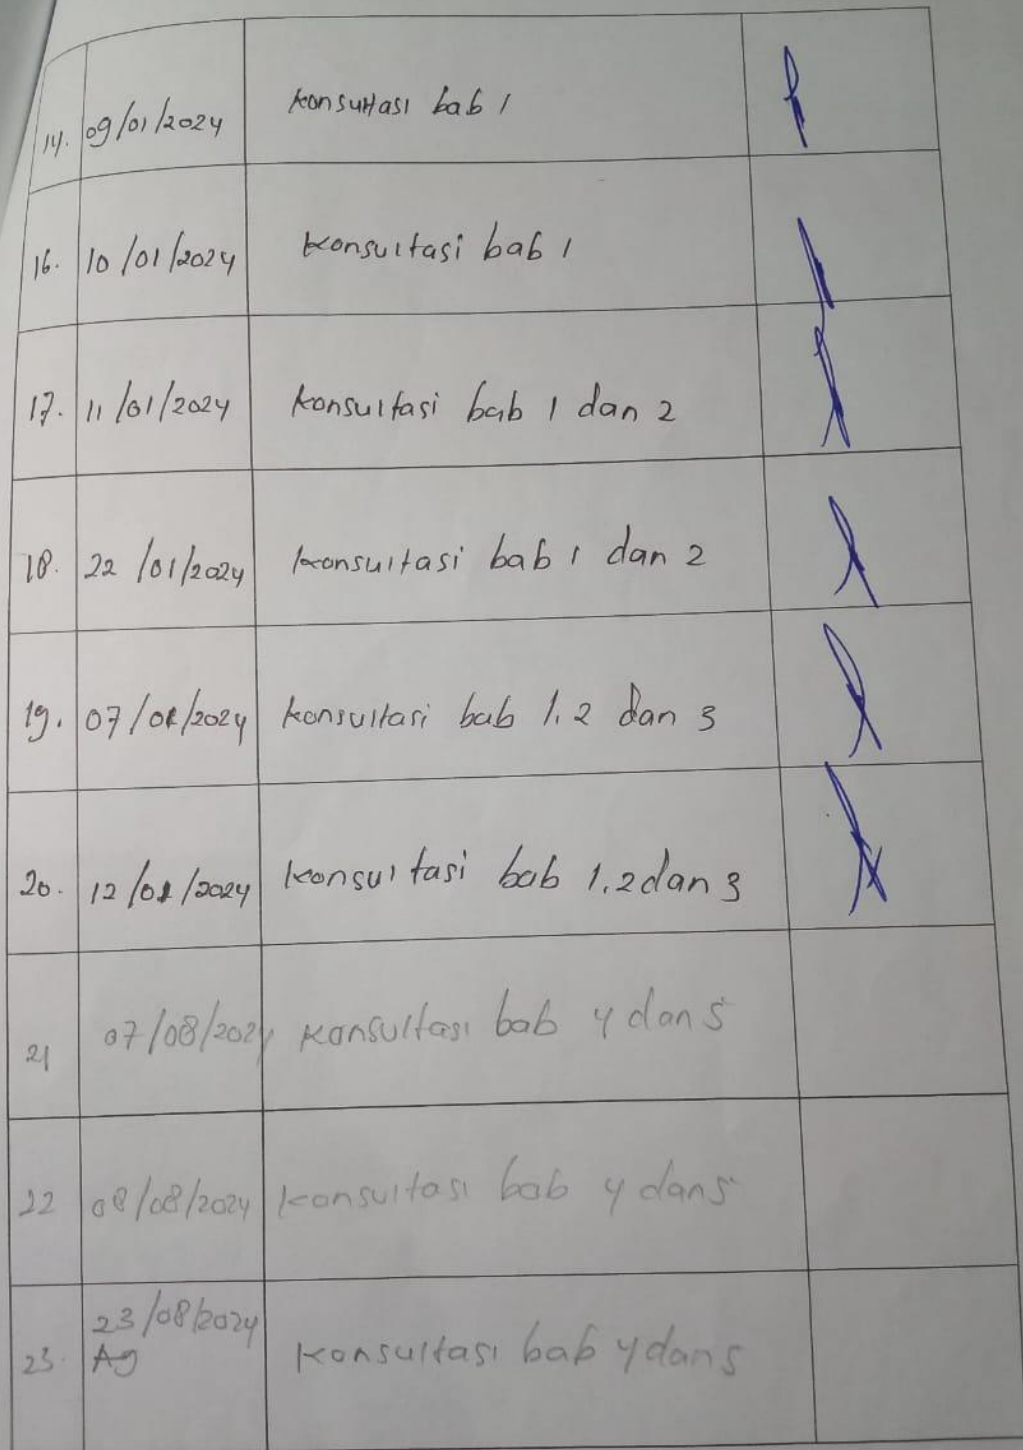 14. 09/01/2024 konsultasi bab 1
16. 10/01/2024 konsultasi bab 1
17. 11/01/2024 konsultasi bab 1 dan 2
18. 22/01/2024 konsultasi bab 1 dan 2
19. 07/ /2024 konsultasi bab 1.2 dan 3
20. 12/ /2024 konsultasi bab 1.2 dan 3
21 07/08/2024 konsultasi bab 4 dan 5
22 08/08/2024 konsultasi bab 4 dan 5
23. 23/08/2024 konsultasi bab 4 dan 5
Ag